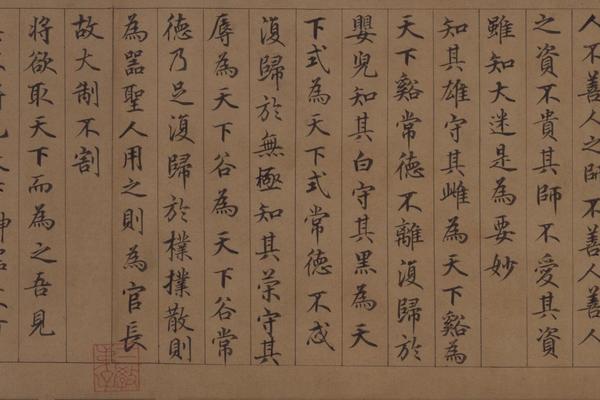 人不善人之師不善人善人
之資不貴其師不愛其資
雖知大迷是為要妙
知其雄守其雌為天下谿為
天下谿常徳不離復歸於
嬰兒知其白守其黑為天
下式為天下式常徳不忒
復歸於無極知其榮守其
辱為天下谷為天下谷常
徳乃足復歸於樸撲散則
為噐聖人用之則為官長
故大制不割
將欲取天下而為之吾見